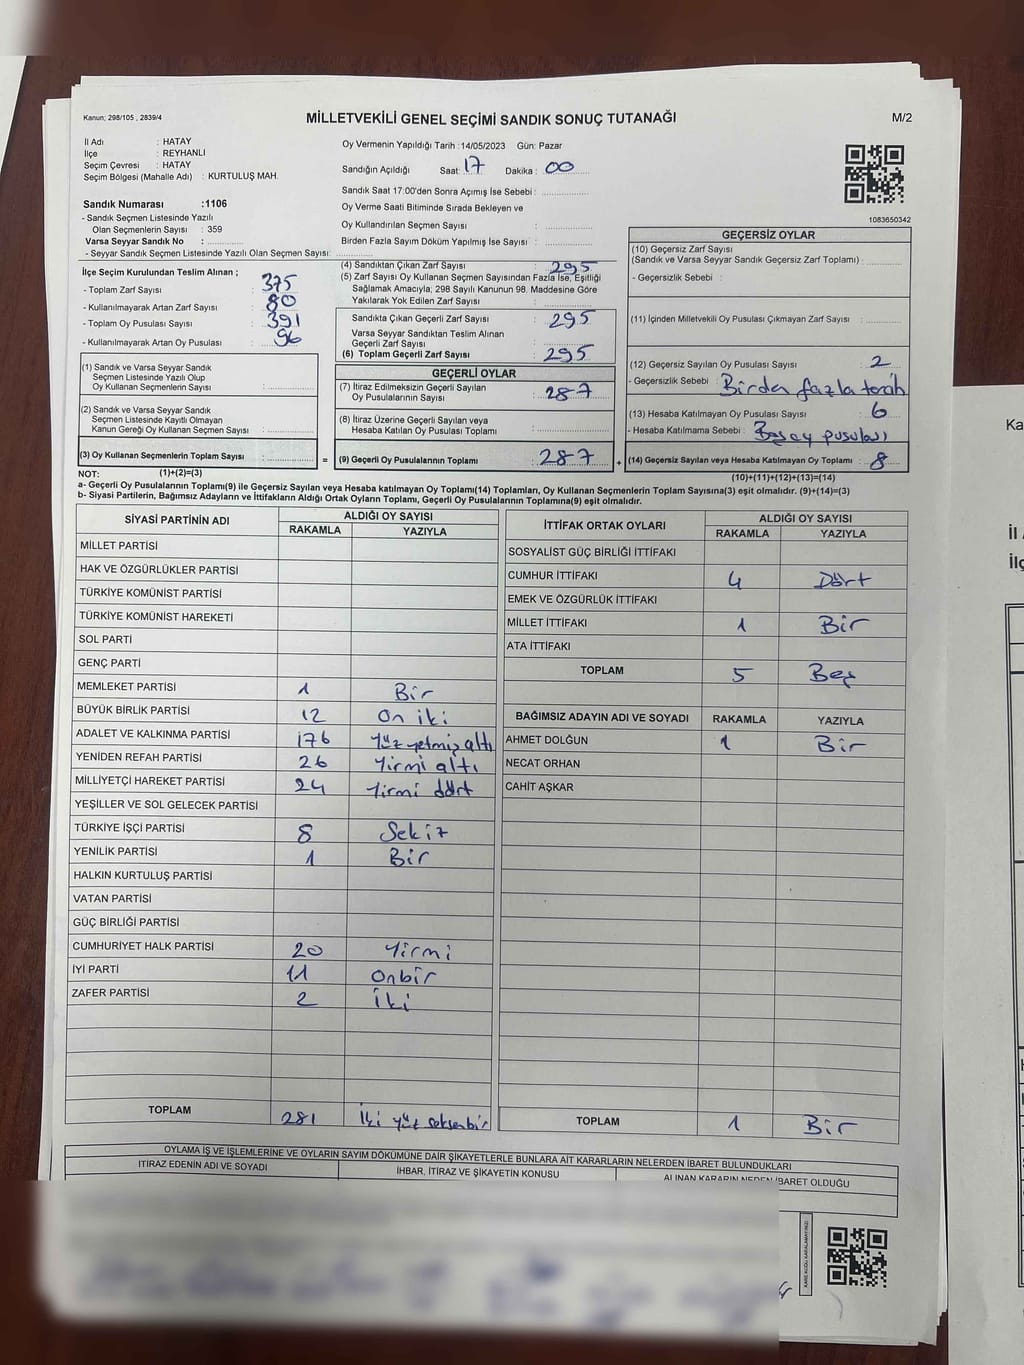 Kanun; 298/105 , 2839/4
MİLLETVEKİLİ GENEL SEÇİMİ SANDIK SONUÇ TUTANAĞI
M/2
İl Adı : HATAY
İlçe : REYHANLI
Seçim Çevresi : HATAY
Seçim Bölgesi (Mahalle Adı) : KURTULUŞ MAH.
Oy Vermenin Yapıldığı Tarih :14/05/2023 Gün: Pazar
Sandığın Açıldığı Saat: 17 Dakika : 00
Sandık Saat 17:00'den Sonra Açımış İse Sebebi :
Oy Verme Saati Bitiminde Sırada Bekleyen ve
Oy Kullandırılan Seçmen Sayısı :
Birden Fazla Sayım Döküm Yapılmış İse Sayısı :
1083650342
Sandık Numarası :1106
- Sandık Seçmen Listesinde Yazılı
Olan Seçmenlerin Sayısı : 359
Varsa Seyyar Sandık No :
- Seyyar Sandık Seçmen Listesinde Yazılı Olan Seçmen Sayısı:
İlçe Seçim Kurulundan Teslim Alınan ;
- Toplam Zarf Sayısı : 375
- Kullanılmayarak Artan Zarf Sayısı : 80
- Toplam Oy Pusulası Sayısı : 391
- Kullanılmayarak Artan Oy Pusulası : 96
(1) Sandık ve Varsa Seyyar Sandık
Seçmen Listesinde Yazılı Olup
Oy Kullanan Seçmenlerin Sayısı :
(2) Sandık ve Varsa Seyyar Sandık
Seçmen Listesinde Kayıtlı Olmayan
Kanun Gereği Oy Kullanan Seçmen Sayısı :
(3) Oy Kullanan Seçmenlerin Toplam Sayısı :
(1)+(2)=(3)
(4) Sandıktan Çıkan Zarf Sayısı : 295
(5) Zarf Sayısı Oy Kullanan Seçmen Sayısından Fazla İse, Eşitliği
Sağlamak Amacıyla; 298 Sayılı Kanunun 98. Maddesine Göre
Yakılarak Yok Edilen Zarf Sayısı :
Sandıkta Çıkan Geçerli Zarf Sayısı : 295
Varsa Seyyar Sandıktan Teslim Alınan
Geçerli Zarf Sayısı :
(6) Toplam Geçerli Zarf Sayısı : 295
GEÇERLİ OYLAR
(7) İtiraz Edilmeksizin Geçerli Sayılan
Oy Pusulalarının Sayısı : 287
(8) İtiraz Üzerine Geçerli Sayılan veya
Hesaba Katılan Oy Pusulası Toplamı :
= (9) Geçerli Oy Pusulalarının Toplamı : 287 +
GEÇERSİZ OYLAR
(10) Geçersiz Zarf Sayısı
(Sandık ve Varsa Seyyar Sandık Geçersiz Zarf Toplamı) :
- Geçersizlik Sebebi :
(11) İçinden Milletvekili Oy Pusulası Çıkmayan Zarf Sayısı :
(12) Geçersiz Sayılan Oy Pusulası Sayısı : 2
- Geçersizlik Sebebi : Birden fazla tercih
(13) Hesaba Katılmayan Oy Pusulası Sayısı : 6
- Hesaba Katılmama Sebebi : Boş oy pusulası
(14) Geçersiz Sayılan veya Hesaba Katılmayan Oy Toplamı : 8
(10)+(11)+(12)+(13)=(14)
NOT:
a- Geçerli Oy Pusulalarının Toplamı(9) ile Geçersiz Sayılan veya Hesaba katılmayan Oy Toplamı(14) Toplamları, Oy Kullanan Seçmenlerin Toplam Sayısına(3) eşit olmalıdır. (9)+(14)=(3)
b- Siyasi Partilerin, Bağımsız Adayların ve İttifakların Aldığı Ortak Oyların Toplamı, Geçerli Oy Pusulalarının Toplamına(9) eşit olmalıdır.
SİYASİ PARTİNİN ADI ALDIĞI OY SAYISI
RAKAMLA YAZIYLA
MİLLET PARTİSİ
HAK VE ÖZGÜRLÜKLER PARTİSİ
TÜRKİYE KOMÜNİST PARTİSİ
TÜRKİYE KOMÜNİST HAREKETİ
SOL PARTİ
GENÇ PARTİ
MEMLEKET PARTİSİ 1 Bir
BÜYÜK BİRLİK PARTİSİ 12 On iki
ADALET VE KALKINMA PARTİSİ 176 Yüz yetmiş altı
YENİDEN REFAH PARTİSİ 26 Yirmi altı
MİLLİYETÇİ HAREKET PARTİSİ 24 Yirmi dört
YEŞİLLER VE SOL GELECEK PARTİSİ
TÜRKİYE İŞÇİ PARTİSİ 8 Sekiz
YENİLİK PARTİSİ 1 Bir
HALKIN KURTULUŞ PARTİSİ
VATAN PARTİSİ
GÜÇ BİRLİĞİ PARTİSİ
CUMHURİYET HALK PARTİSİ 20 Yirmi
İYİ PARTİ 11 Onbir
ZAFER PARTİSİ 2 İki
TOPLAM 281 İki yüz seksenbir
İTTİFAK ORTAK OYLARI ALDIĞI OY SAYISI
RAKAMLA YAZIYLA
SOSYALİST GÜÇ BİRLİĞİ İTTİFAKI
CUMHUR İTTİFAKI 4 Dört
EMEK VE ÖZGÜRLÜK İTTİFAKI
MİLLET İTTİFAKI 1 Bir
ATA İTTİFAKI
TOPLAM 5 Beş
BAĞIMSIZ ADAYIN ADI VE SOYADI RAKAMLA YAZIYLA
AHMET DOLĞUN 1 Bir
NECAT ORHAN
CAHİT AŞKAR
TOPLAM 1 Bir
OYLAMA İŞ VE İŞLEMLERİNE VE OYLARIN SAYIM DÖKÜMÜNE DAİR ŞİKAYETLERLE BUNLARA AİT KARARLARIN NELERDEN İBARET BULUNDUKLARI
İTİRAZ EDENİN ADI VE SOYADI
İHBAR, İTİRAZ VE ŞİKAYETİN KONUSU
ALINAN KARARIN NEDEN İBARET OLDUĞU